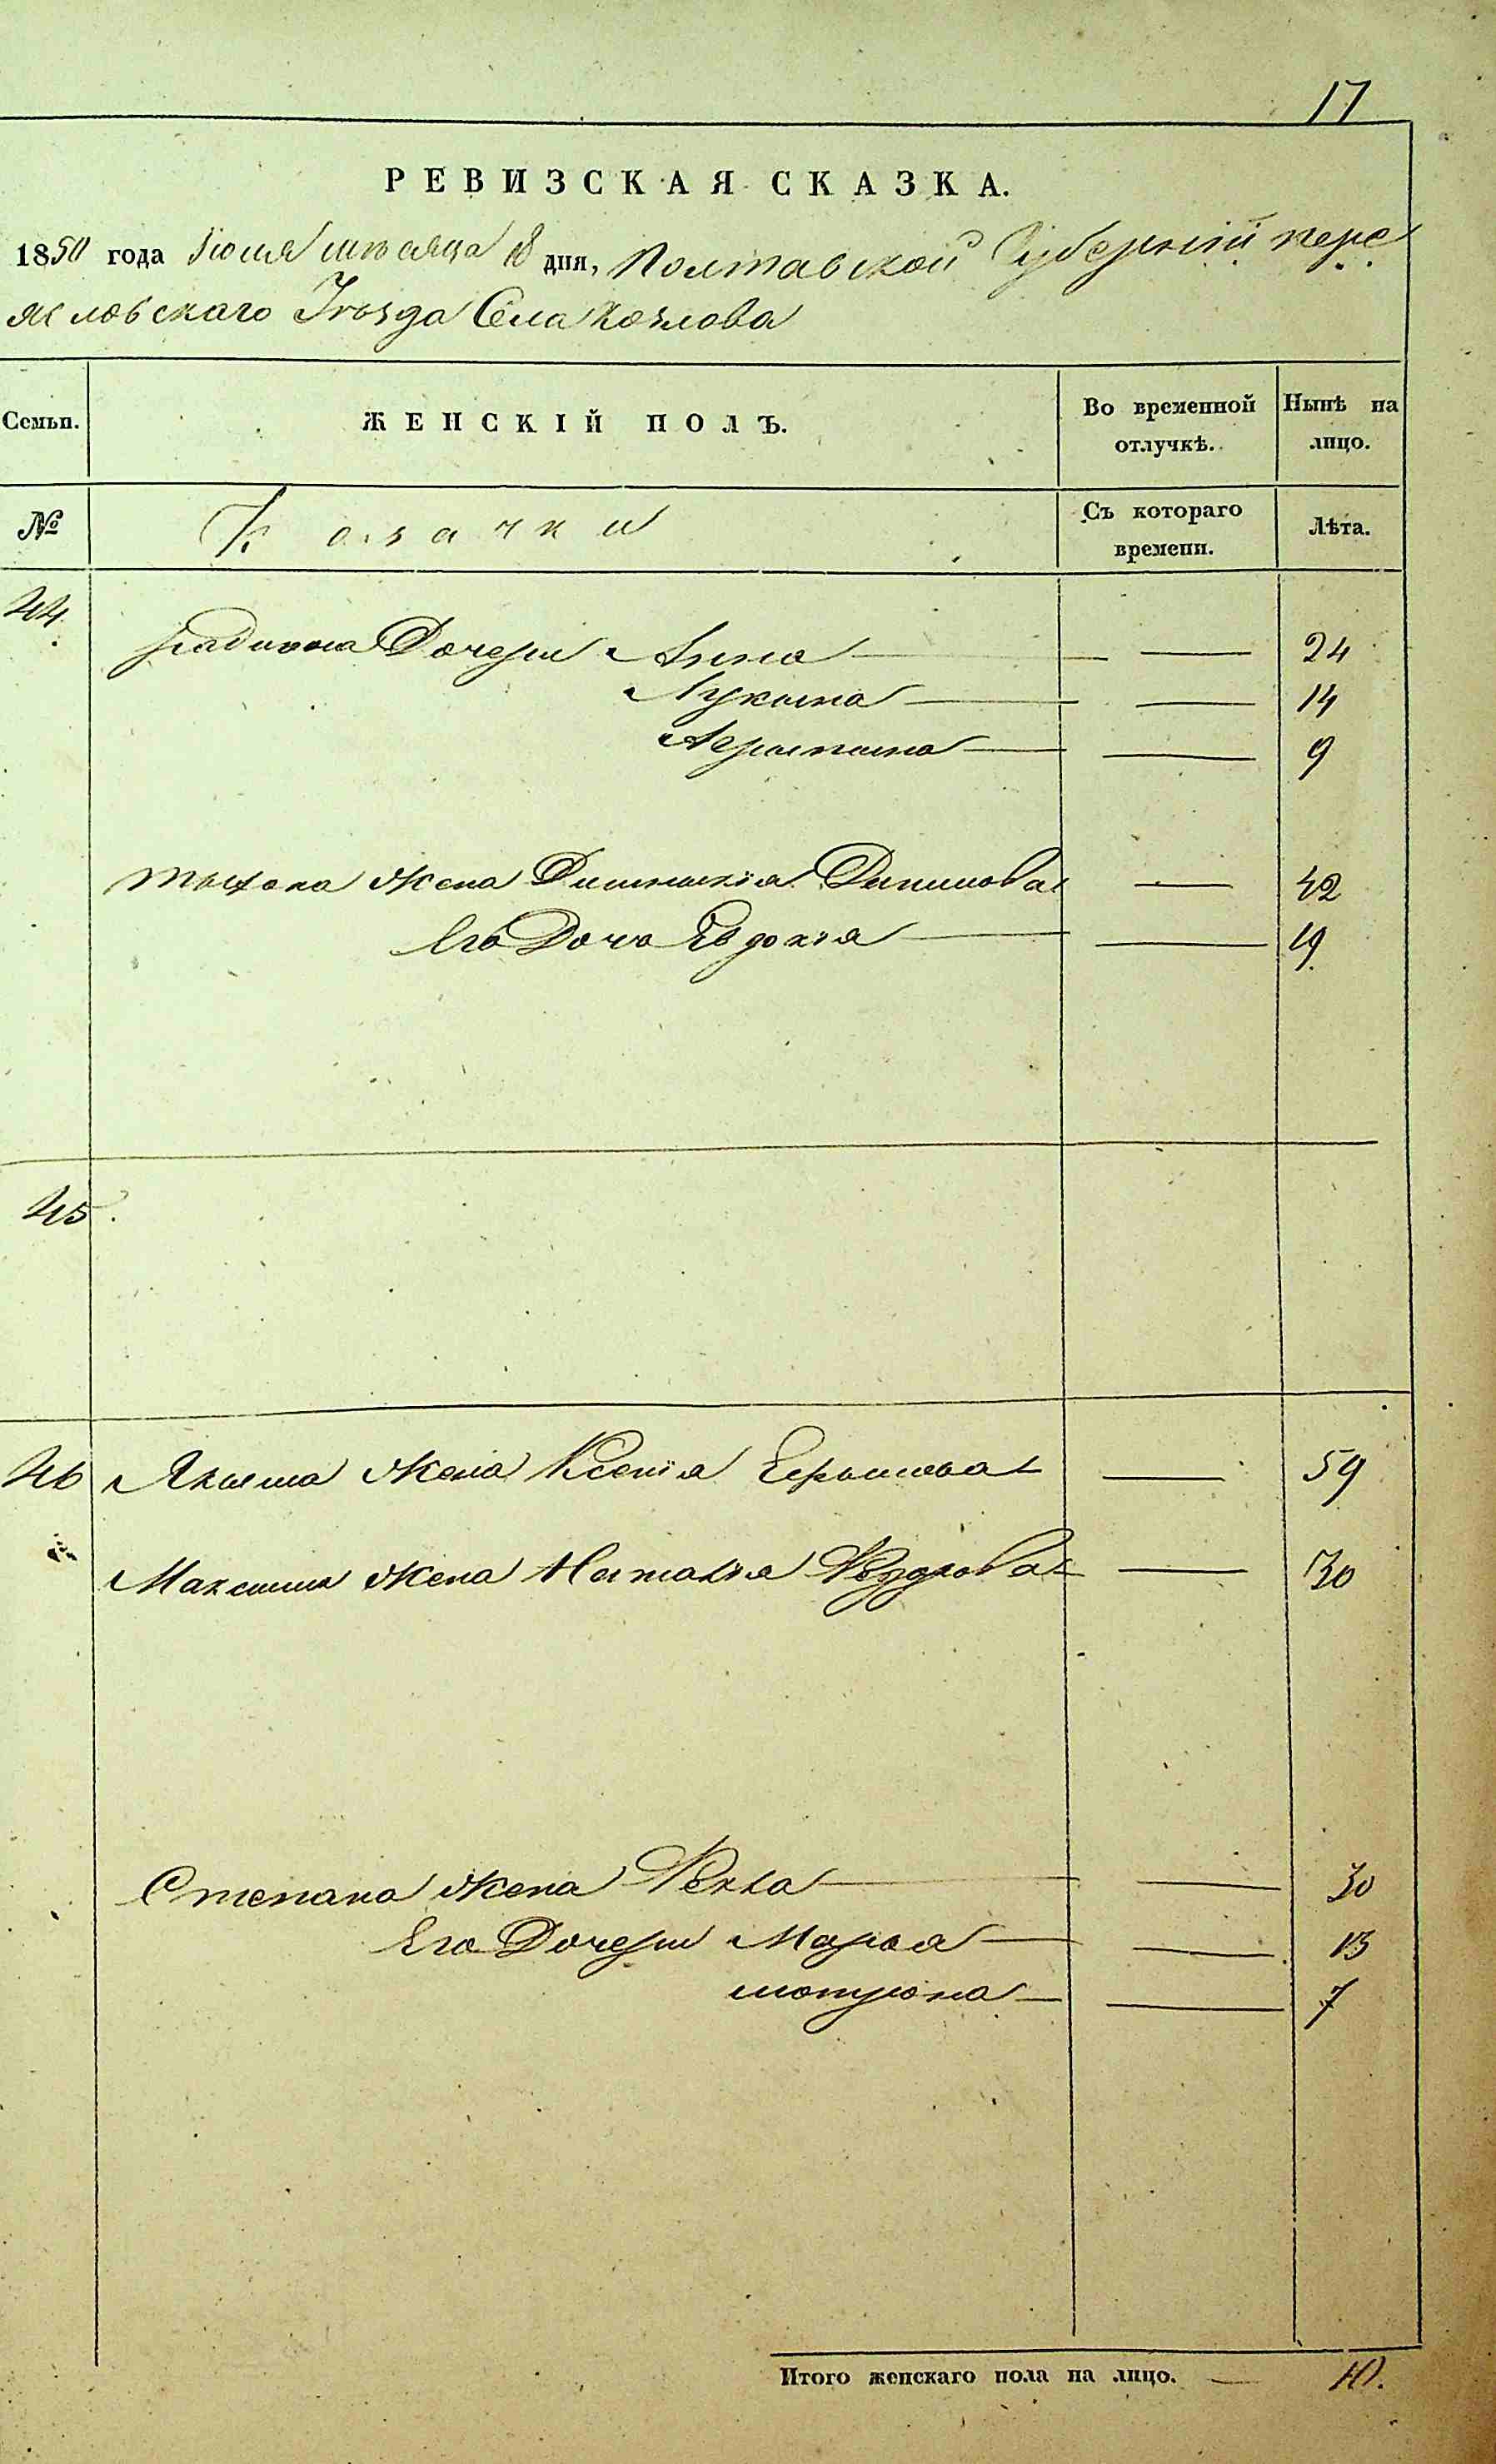 17
РЕВИЗСКАЯ СКАЗКА.
1850 года Июля мѣсяца 18 дня, Полтавской Губерній пере
яславскаго Уѣзда Села Козлова
Семьи. ЖЕНСКІЙ ПОЛЪ. Во временной отлучкѣ. Нынѣ на лицо.
№ Козачки Съ котораго времени. Лѣта.
44. Дочери Анна — — 24
Лукина — — 14
— — 9
жена — 42
Его Дочь Евдокія — — 19.
45.
46 Якима жена Ксенія — 59
Максима жена Наталія Ѳедорова — 30
Степана жена Ѳекла — — 30
Его Дочери Марья — — 13
мотрона — — 7
Итого женскаго пола на лицо. — 10.